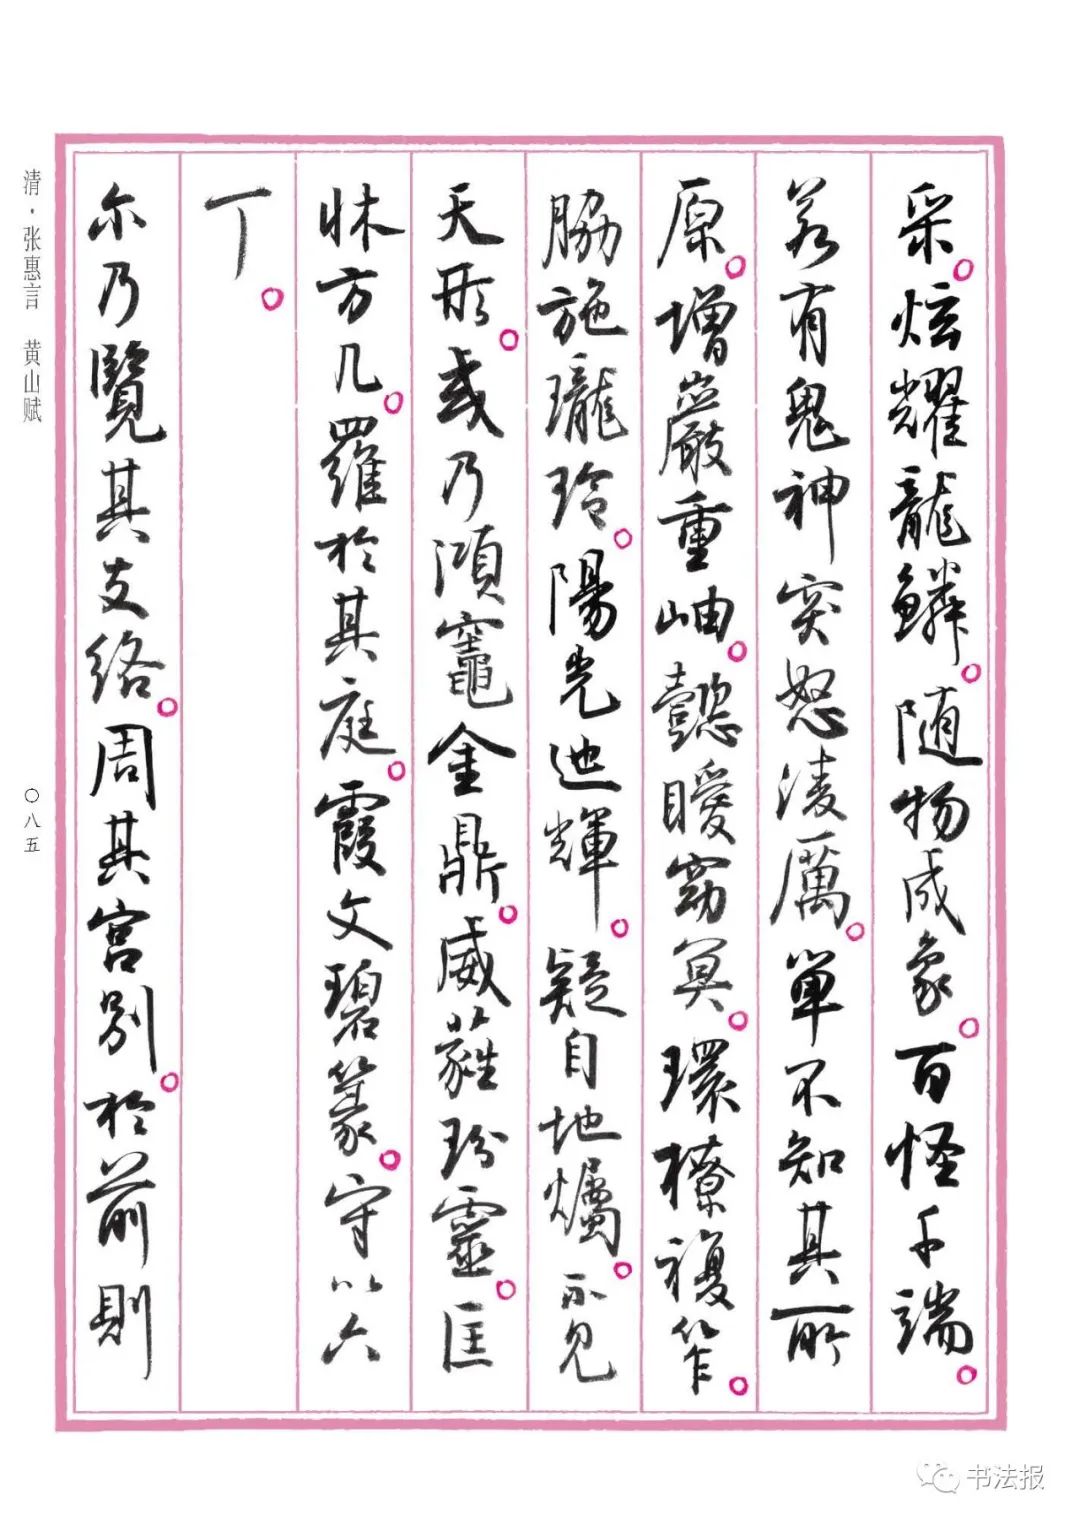 采。炫耀龍鱗。随物成象。百怪千端。
若有鬼神突怒淩厲。單不知其所
原。增巖重岫。懿曖窈冥。環橑複笮。
脇施瓏玲。陽光迆輝。疑自地爥。不見
天形。或乃澒竈金鼎。葳蕤玢靈。匡
牀方几。羅於其庭。霞文碧篆。守以六
丁。
尓乃覽其支络。周其宮别。於前則
清·张惠言 黄山赋
〇八五
书法报